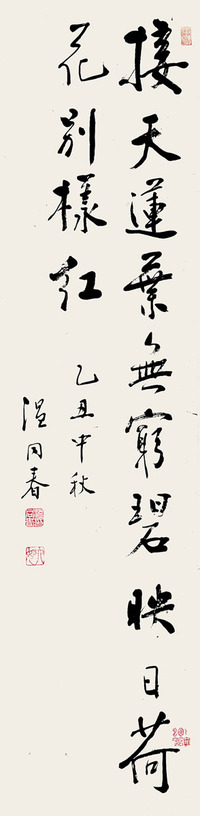 接天蓮葉無窮碧映日荷
花別樣紅
乙丑中秋
溫同春